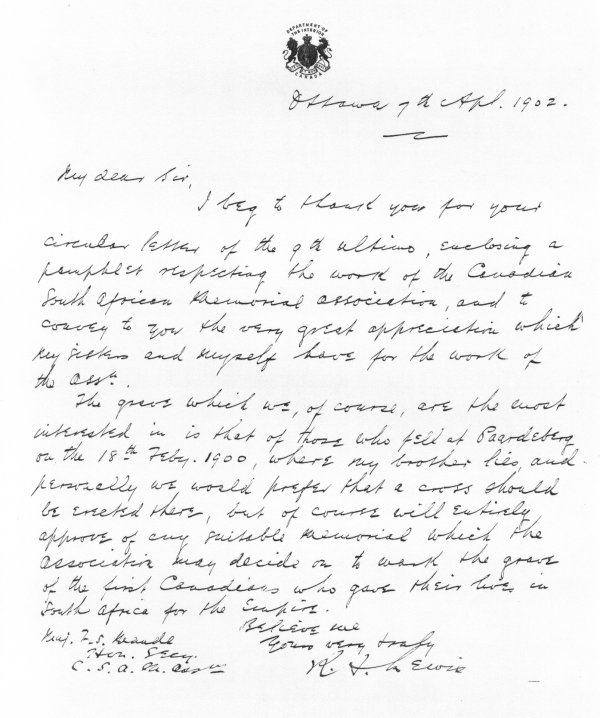 DEPARTMENT OF
THE INTERIOR
CANADA
Ottawa 7th Apl. 1902.
My dear Sir,
I beg to thank you for your
circular letter of the 9th ultimo, enclosing a
pamphlet respecting the work of the Canadian
South African Memorial Association, and to
convey to you the very great appreciation which
my sisters and myself have for the work of
the Assn.
The grave which we, of course, are the most
interested in is that of those who fell at Paardeberg
on the 18th Feby. 1900, where my brother lies, and
personally we would prefer that a cross should
be erected there, but of course will entirely
approve of any suitable Memorial which the
Association may decide on to mark the grave
of the first Canadians who gave their lives in
South Africa for the Empire.
Believe me
Yours very truly
Maj. F.S. Maude
Hon. Secy.
C.S.A.M. Assn